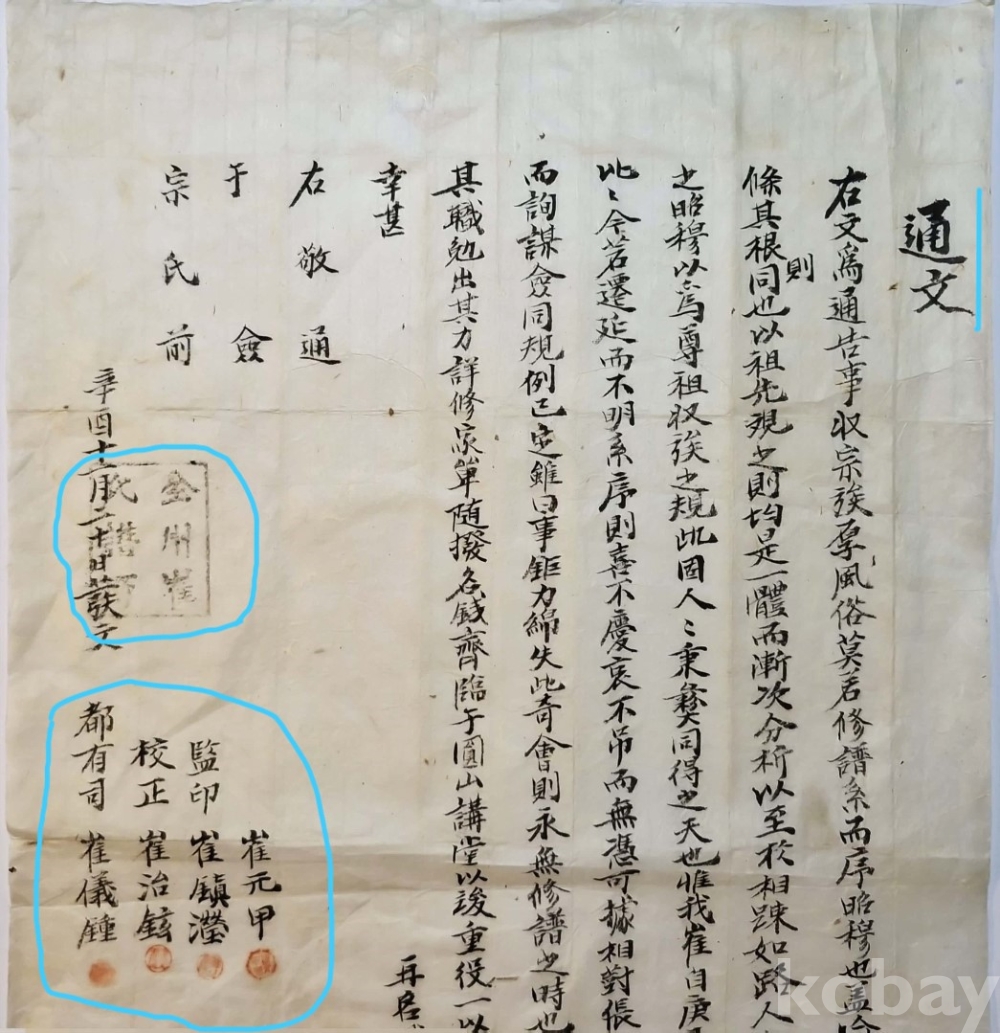 通文
右文爲通告事収宗族厚風俗莫若修譜系而序昭穆也盖
條其根同也以祖先視之則均是一體而漸次分析以至於相踈如路人
則
之昭穆以爲尊祖収族之規此固人〻秉彛同得之天也惟我崔自庚
此〻今若遷延而不明系序則喜不慶哀不吊而無憑可據相對張
而詢謀僉同規例已定雖曰事鉅力綿失此奇會則永無修譜之時也
其職勉出其力詳修家單随撥名錢齊臨于圓山講堂以竣重役一以
幸甚
再
右敬通
于
僉
宗氏前
辛酉十二月二十日發文
全州崔
氏譜所
崔元甲
監印 崔鎭瀅
校正 崔治鉉
都有司 崔儀鍾
kobay